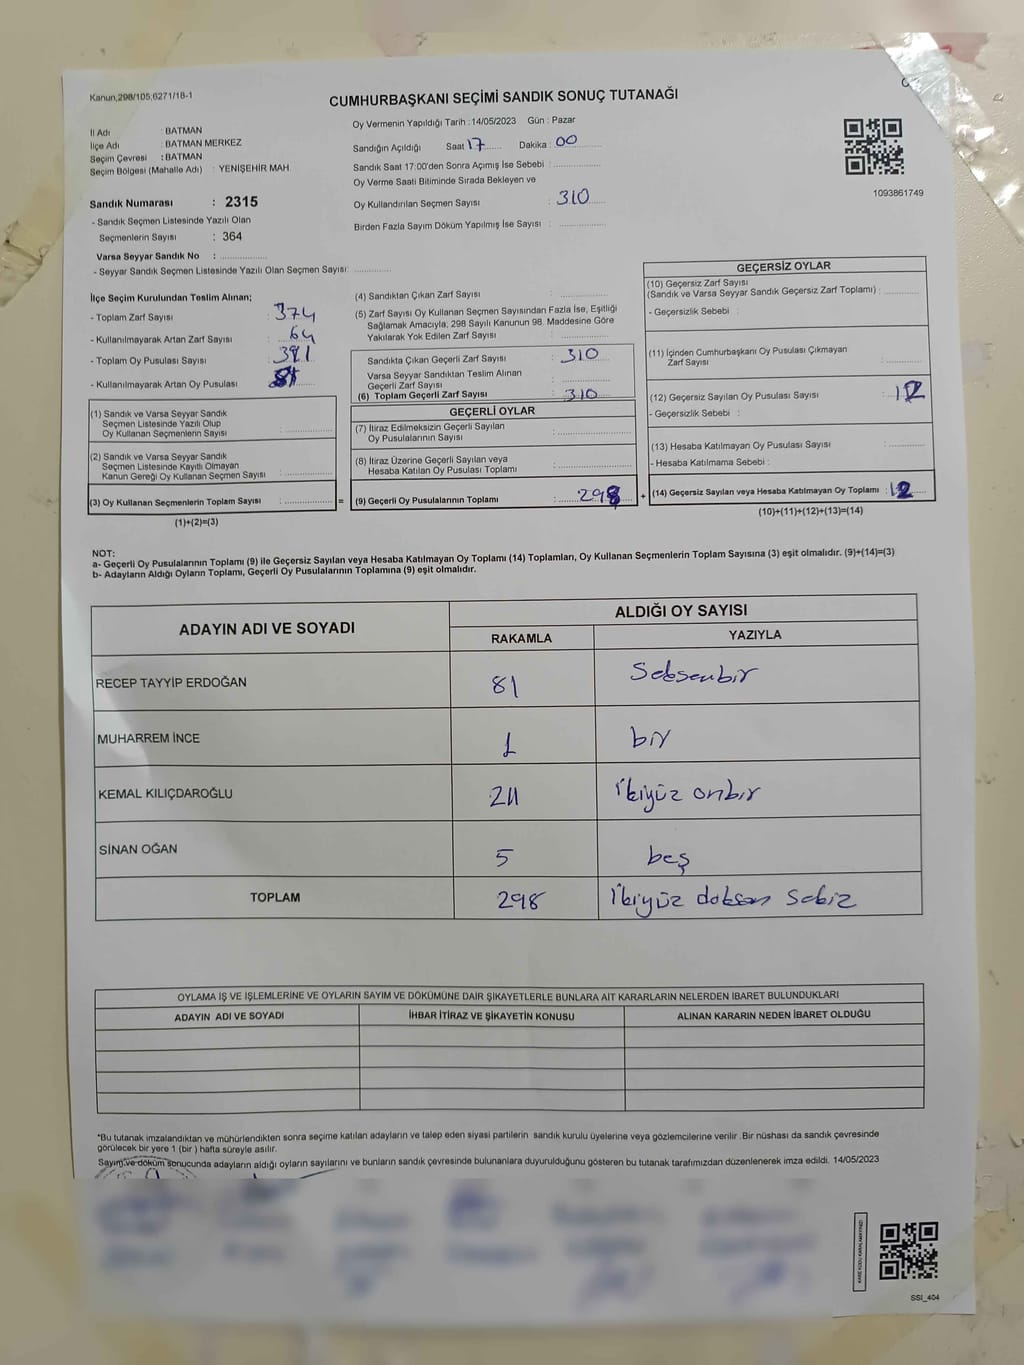 Kanun,298/105,6271/18-1
CUMHURBAŞKANI SEÇİMİ SANDIK SONUÇ TUTANAĞI
İl Adı : BATMAN
İlçe Adı : BATMAN MERKEZ
Seçim Çevresi : BATMAN
Seçim Bölgesi (Mahalle Adı) : YENİŞEHİR MAH.
Sandık Numarası : 2315
- Sandık Seçmen Listesinde Yazılı Olan
Seçmenlerin Sayısı : 364
Varsa Seyyar Sandık No : ..................
- Seyyar Sandık Seçmen Listesinde Yazılı Olan Seçmen Sayısı: ..............
Oy Vermenin Yapıldığı Tarih :14/05/2023 Gün : Pazar
Sandığın Açıldığı Saat 17 Dakika : 00
Sandık Saat 17:00'den Sonra Açımış İse Sebebi : ..................
Oy Verme Saati Bitiminde Sırada Bekleyen ve
Oy Kullandırılan Seçmen Sayısı : 310
Birden Fazla Sayım Döküm Yapılmış İse Sayısı : ..................
1093861749
İlçe Seçim Kurulundan Teslim Alınan;
- Toplam Zarf Sayısı : 374
- Kullanılmayarak Artan Zarf Sayısı : 64
- Toplam Oy Pusulası Sayısı : 391
- Kullanılmayarak Artan Oy Pusulası : 81
(1) Sandık ve Varsa Seyyar Sandık
Seçmen Listesinde Yazılı Olup
Oy Kullanan Seçmenlerin Sayısı : ..................
(2) Sandık ve Varsa Seyyar Sandık
Seçmen Listesinde Kayıtlı Olmayan
Kanun Gereği Oy Kullanan Seçmen Sayısı : ..................
(3) Oy Kullanan Seçmenlerin Toplam Sayısı : ..................
(1)+(2)=(3)
=
(4) Sandıktan Çıkan Zarf Sayısı : ..................
(5) Zarf Sayısı Oy Kullanan Seçmen Sayısından Fazla İse, Eşitliği
Sağlamak Amacıyla, 298 Sayılı Kanunun 98. Maddesine Göre
Yakılarak Yok Edilen Zarf Sayısı : ..................
Sandıkta Çıkan Geçerli Zarf Sayısı : 310
Varsa Seyyar Sandıktan Teslim Alınan
Geçerli Zarf Sayısı : ..................
(6) Toplam Geçerli Zarf Sayısı : 310
GEÇERLİ OYLAR
(7) İtiraz Edilmeksizin Geçerli Sayılan
Oy Pusulalarının Sayısı : ..................
(8) İtiraz Üzerine Geçerli Sayılan veya
Hesaba Katılan Oy Pusulası Toplamı : ..................
(9) Geçerli Oy Pusulalarının Toplamı : 298
+
GEÇERSİZ OYLAR
(10) Geçersiz Zarf Sayısı
(Sandık ve Varsa Seyyar Sandık Geçersiz Zarf Toplamı) : ..............
- Geçersizlik Sebebi :
(11) İçinden Cumhurbaşkanı Oy Pusulası Çıkmayan
Zarf Sayısı : ..............
(12) Geçersiz Sayılan Oy Pusulası Sayısı : 12
- Geçersizlik Sebebi :
(13) Hesaba Katılmayan Oy Pusulası Sayısı : ..............
- Hesaba Katılmama Sebebi :
(14) Geçersiz Sayılan veya Hesaba Katılmayan Oy Toplamı : 12
(10)+(11)+(12)+(13)=(14)
NOT:
a- Geçerli Oy Pusulalarının Toplamı (9) ile Geçersiz Sayılan veya Hesaba Katılmayan Oy Toplamı (14) Toplamları, Oy Kullanan Seçmenlerin Toplam Sayısına (3) eşit olmalıdır. (9)+(14)=(3)
b- Adayların Aldığı Oyların Toplamı, Geçerli Oy Pusulalarının Toplamına (9) eşit olmalıdır.
ADAYIN ADI VE SOYADI
ALDIĞI OY SAYISI
RAKAMLA YAZIYLA
RECEP TAYYİP ERDOĞAN 81 Seksenbir
MUHARREM İNCE 1 bir
KEMAL KILIÇDAROĞLU 211 İkiyüz onbir
SİNAN OĞAN 5 beş
TOPLAM 298 İkiyüz doksan sekiz
OYLAMA İŞ VE İŞLEMLERİNE VE OYLARIN SAYIM VE DÖKÜMÜNE DAİR ŞİKAYETLERLE BUNLARA AİT KARARLARIN NELERDEN İBARET BULUNDUKLARI
ADAYIN ADI VE SOYADI İHBAR İTİRAZ VE ŞİKAYETİN KONUSU ALINAN KARARIN NEDEN İBARET OLDUĞU
*Bu tutanak imzalandıktan ve mühürlendikten sonra seçime katılan adayların ve talep eden siyasi partilerin sandık kurulu üyelerine veya gözlemcilerine verilir. Bir nüshası da sandık çevresinde
görülecek bir yere 1 (bir ) hafta süreyle asılır.
Sayım ve döküm sonucunda adayların aldığı oyların sayılarını ve bunların sandık çevresinde bulunanlara duyurulduğunu gösteren bu tutanak tarafımızdan düzenlenerek imza edildi. 14/05/2023
KARE KODU KARALAMAYINIZ!
SSI_404